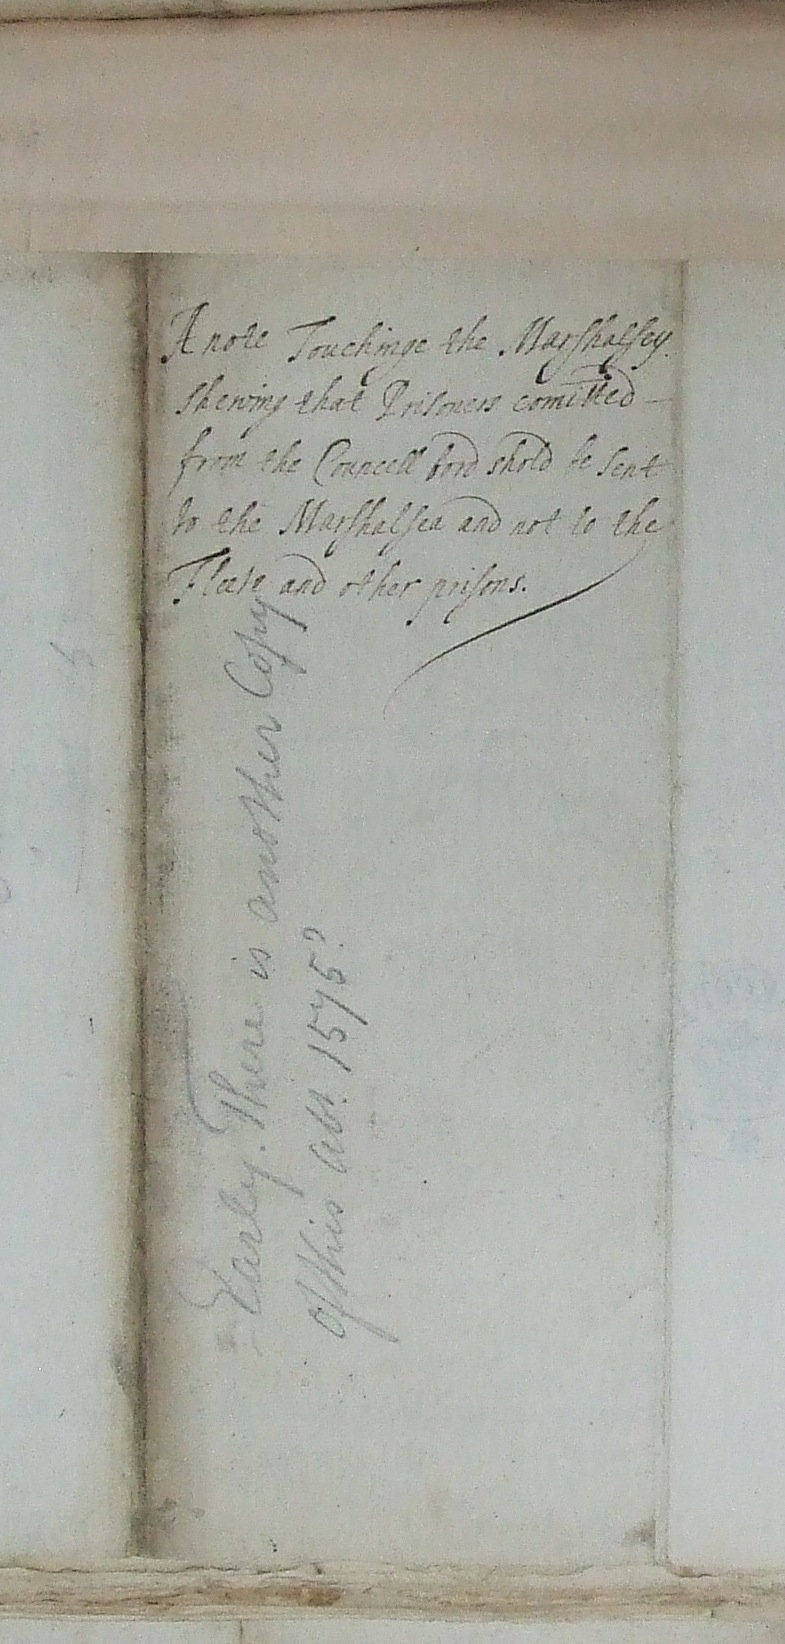 A note Touchinge the Marshalsey.
shewing that Prisoners comitted —
from the Councell bord shold be sent
to the Marshalsea and not to the
Fleete and other prisons.
Early. There is another Copy
of this abt. 1575?